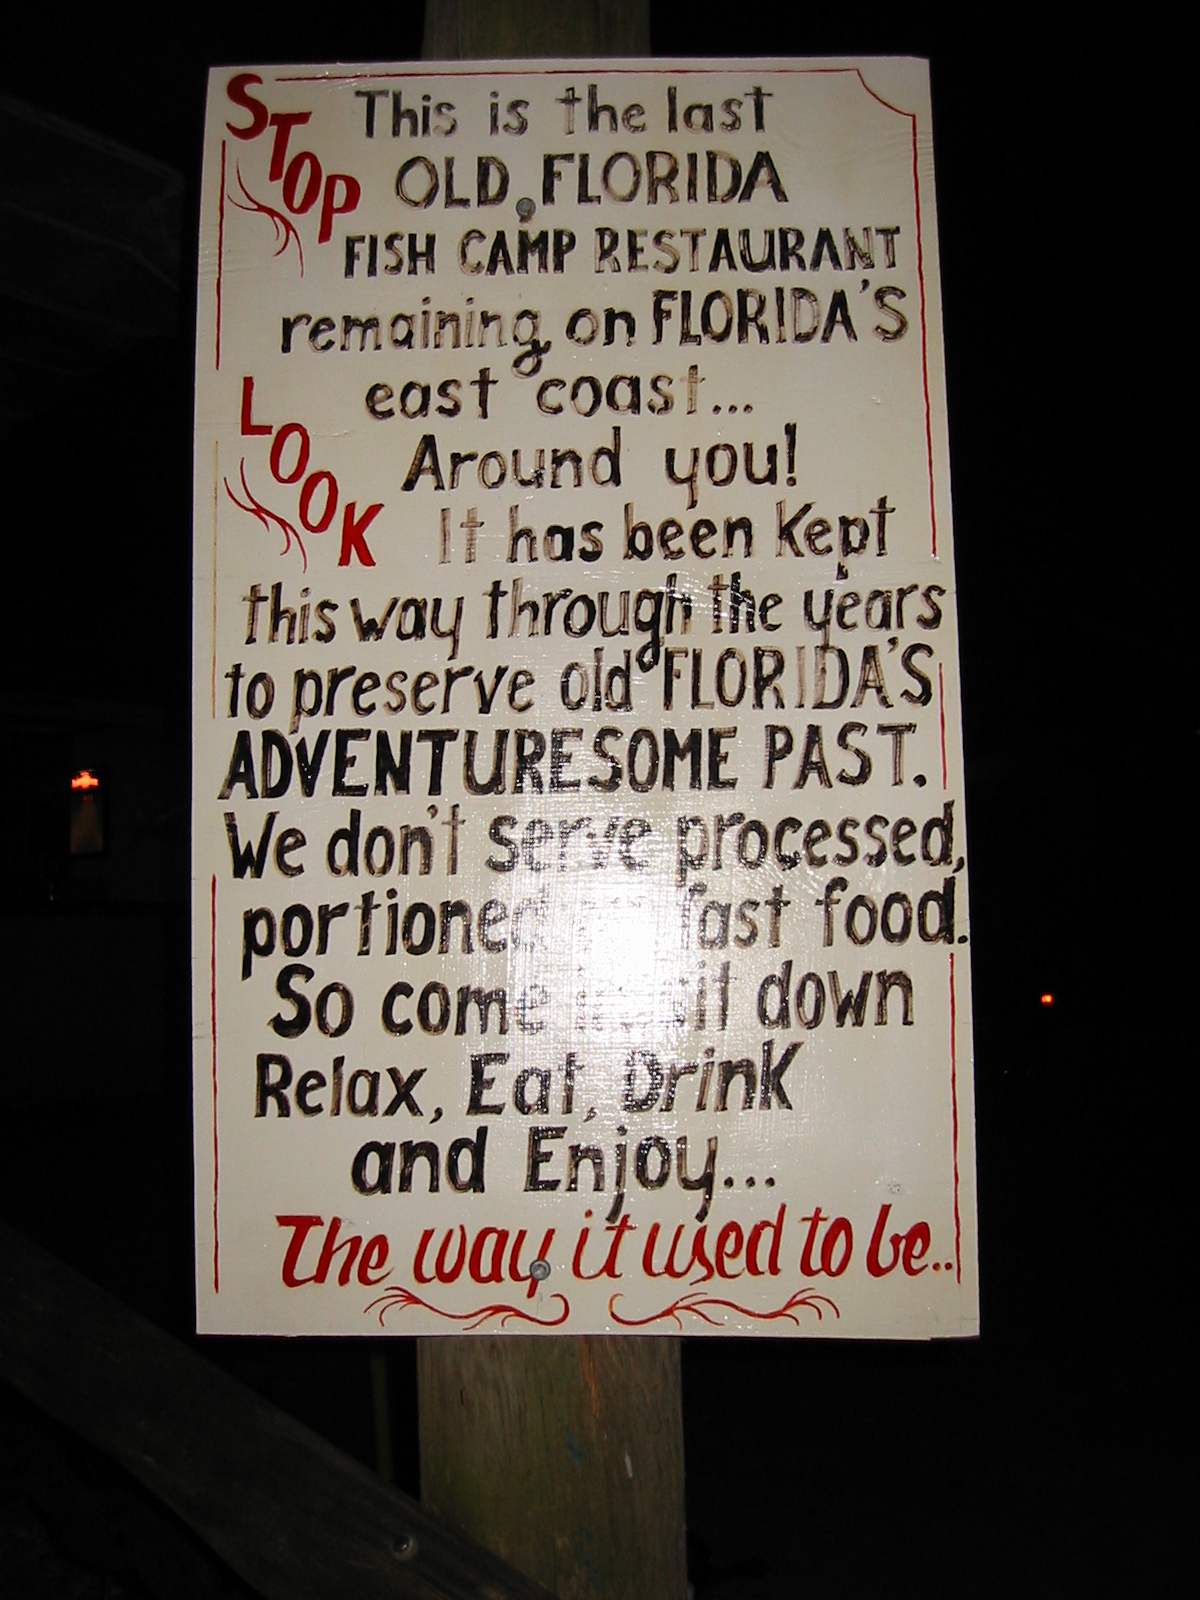 STOP This is the last
OLD FLORIDA
FISH CAMP RESTAURANT
remaining on FLORIDA'S
east coast...
LOOK Around you!
It has been kept
this way through the years
to preserve old FLORIDA'S
ADVENTURESOME PAST.
We don't serve processed,
portioned fast food.
So come sit down
Relax, Eat, Drink
and Enjoy...
The way it used to be..